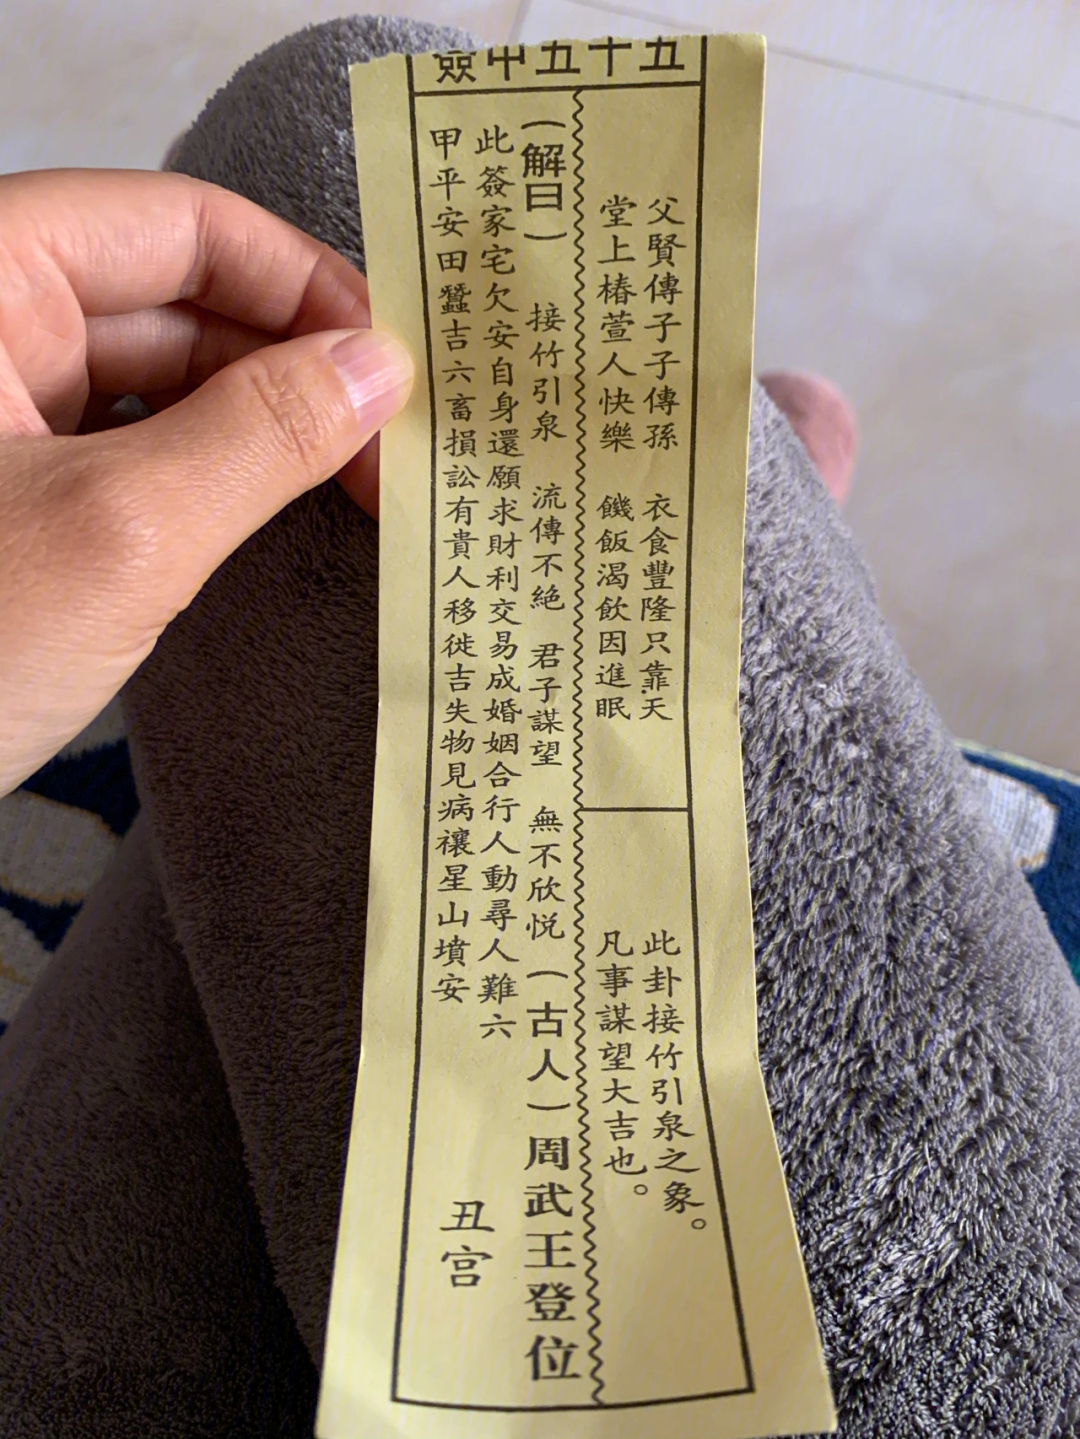 五十五中簽
父賢傳子子傳孫　衣食豐隆只靠天
堂上椿萱人快樂　饑飯渴飲因進眠
此卦接竹引泉之象。
凡事謀望大吉也。
（解曰）　接竹引泉　流傳不絕　君子謀望　無不欣悦（古人）周武王登位
此簽家宅欠安自身還願求財利交易成婚姻合行人動尋人難六
甲平安田蠶吉六畜損訟有貴人移徙吉失物見病禳星山墳安
丑宮